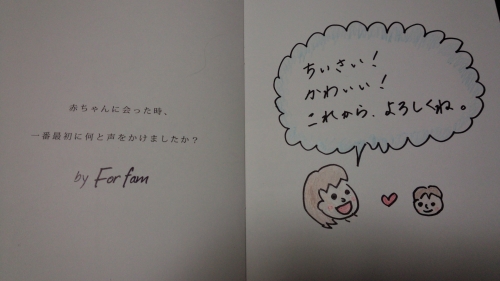 赤ちゃんに会った時、
一番最初に何と声をかけましたか？
by For fam
ちいさい！
かわいい！
これから、よろしくね。